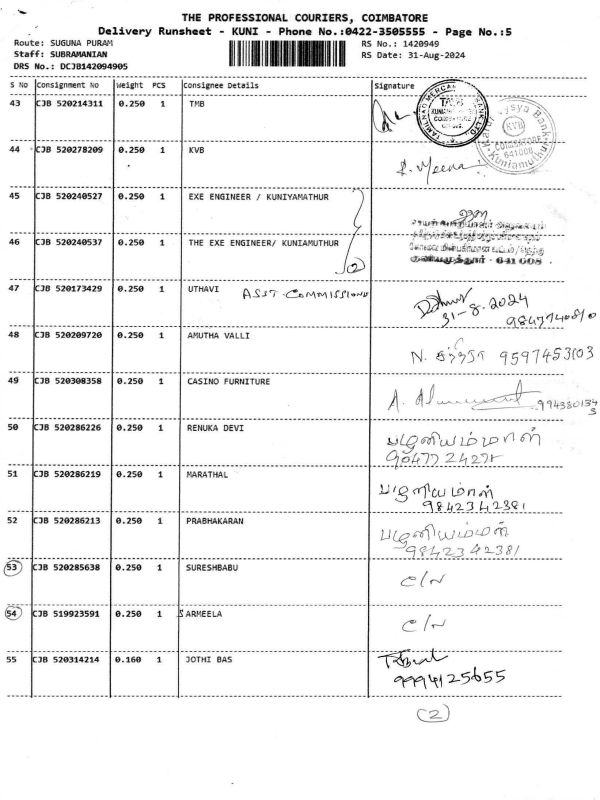 THE PROFESSIONAL COURIERS, COIMBATORE
Delivery Runsheet - KUNI - Phone No.:0422-3505555 - Page No.:5
Route: SUGUNA PURAM
Staff: SUBRAMANIAN
DRS No.: DCJB142094905
RS No.: 1420949
RS Date: 31-Aug-2024
S No Consignment No Weight PCS Consignee Details Signature
43 CJB 520214311 0.250 1 TMB
44 CJB 520278209 0.250 1 KVB R. Meena
45 CJB 520240527 0.250 1 EXE ENGINEER / KUNIYAMATHUR
46 CJB 520240537 0.250 1 THE EXE ENGINEER/ KUNIAMUTHUR (2)
குனியமுத்தூர் - 641 008
47 CJB 520173429 0.250 1 UTHAVI ASST-COMMISSIONE
31-8-2024
48 CJB 520209720 0.250 1 AMUTHA VALLI N. 9597453103
49 CJB 520308358 0.250 1 CASINO FURNITURE A.
50 CJB 520286226 0.250 1 RENUKA DEVI பழனியம்மாள்
51 CJB 520286219 0.250 1 MARATHAL பழனியம்மாள்
9842342381
52 CJB 520286213 0.250 1 PRABHAKARAN பழனியம்மாள்
9842342381
53 CJB 520285638 0.250 1 SURESHBABU C/N
54 CJB 519923591 0.250 1 SARMEELA C/N
55 CJB 520314214 0.160 1 JOTHI BAS
9994125655
(2)